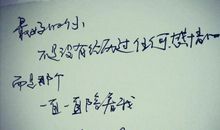 最好的你
不是没有经历过任何感情的
而是那个
一直一直陪着我